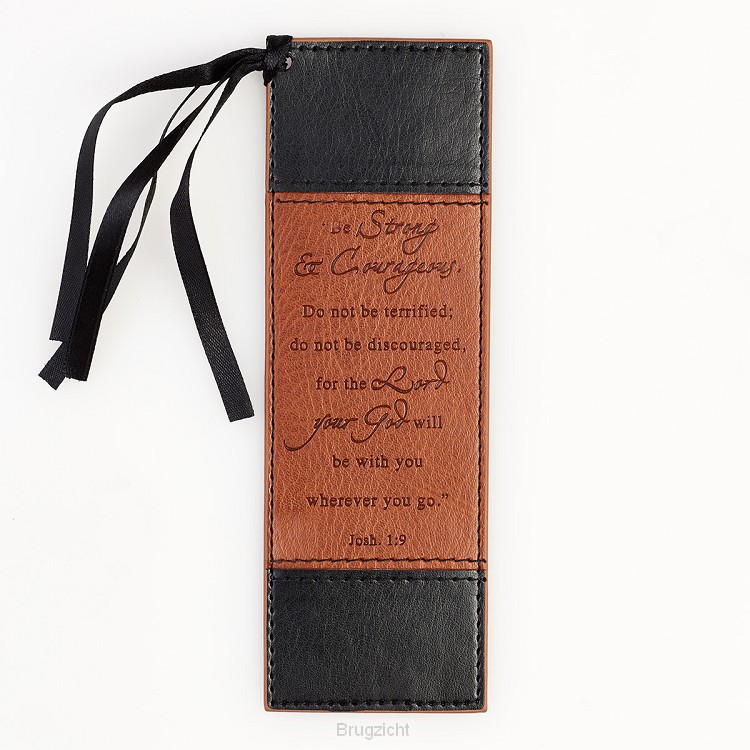 "Be Strong
& Courageous.
Do not be terrified;
do not be discouraged,
for the Lord
your God will
be with you
wherever you go."
Josh. 1:9
Brugzicht